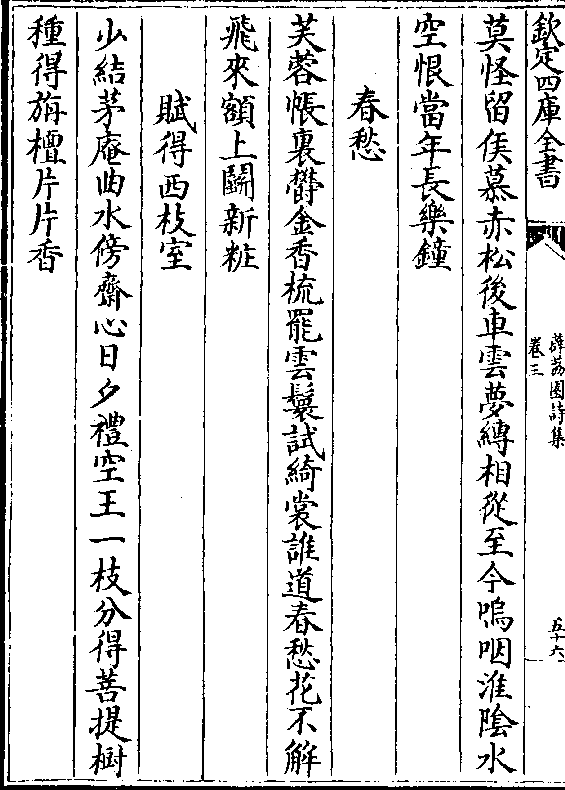 欽定四庫全書
薜荔園詩集
卷三
五十六
莫怪留侯慕赤松後車雲夢縛相從至今嗚咽淮陰水
空恨當年長樂鐘
春愁
芙蓉帳裏欝金香梳罷雲鬟試綺裳誰道春愁花不解
飛來額上鬭新粧
賦得西枝室
少結茅庵曲水傍齋心日夕禮空王一枝分得菩提樹
種得旃檀片片香